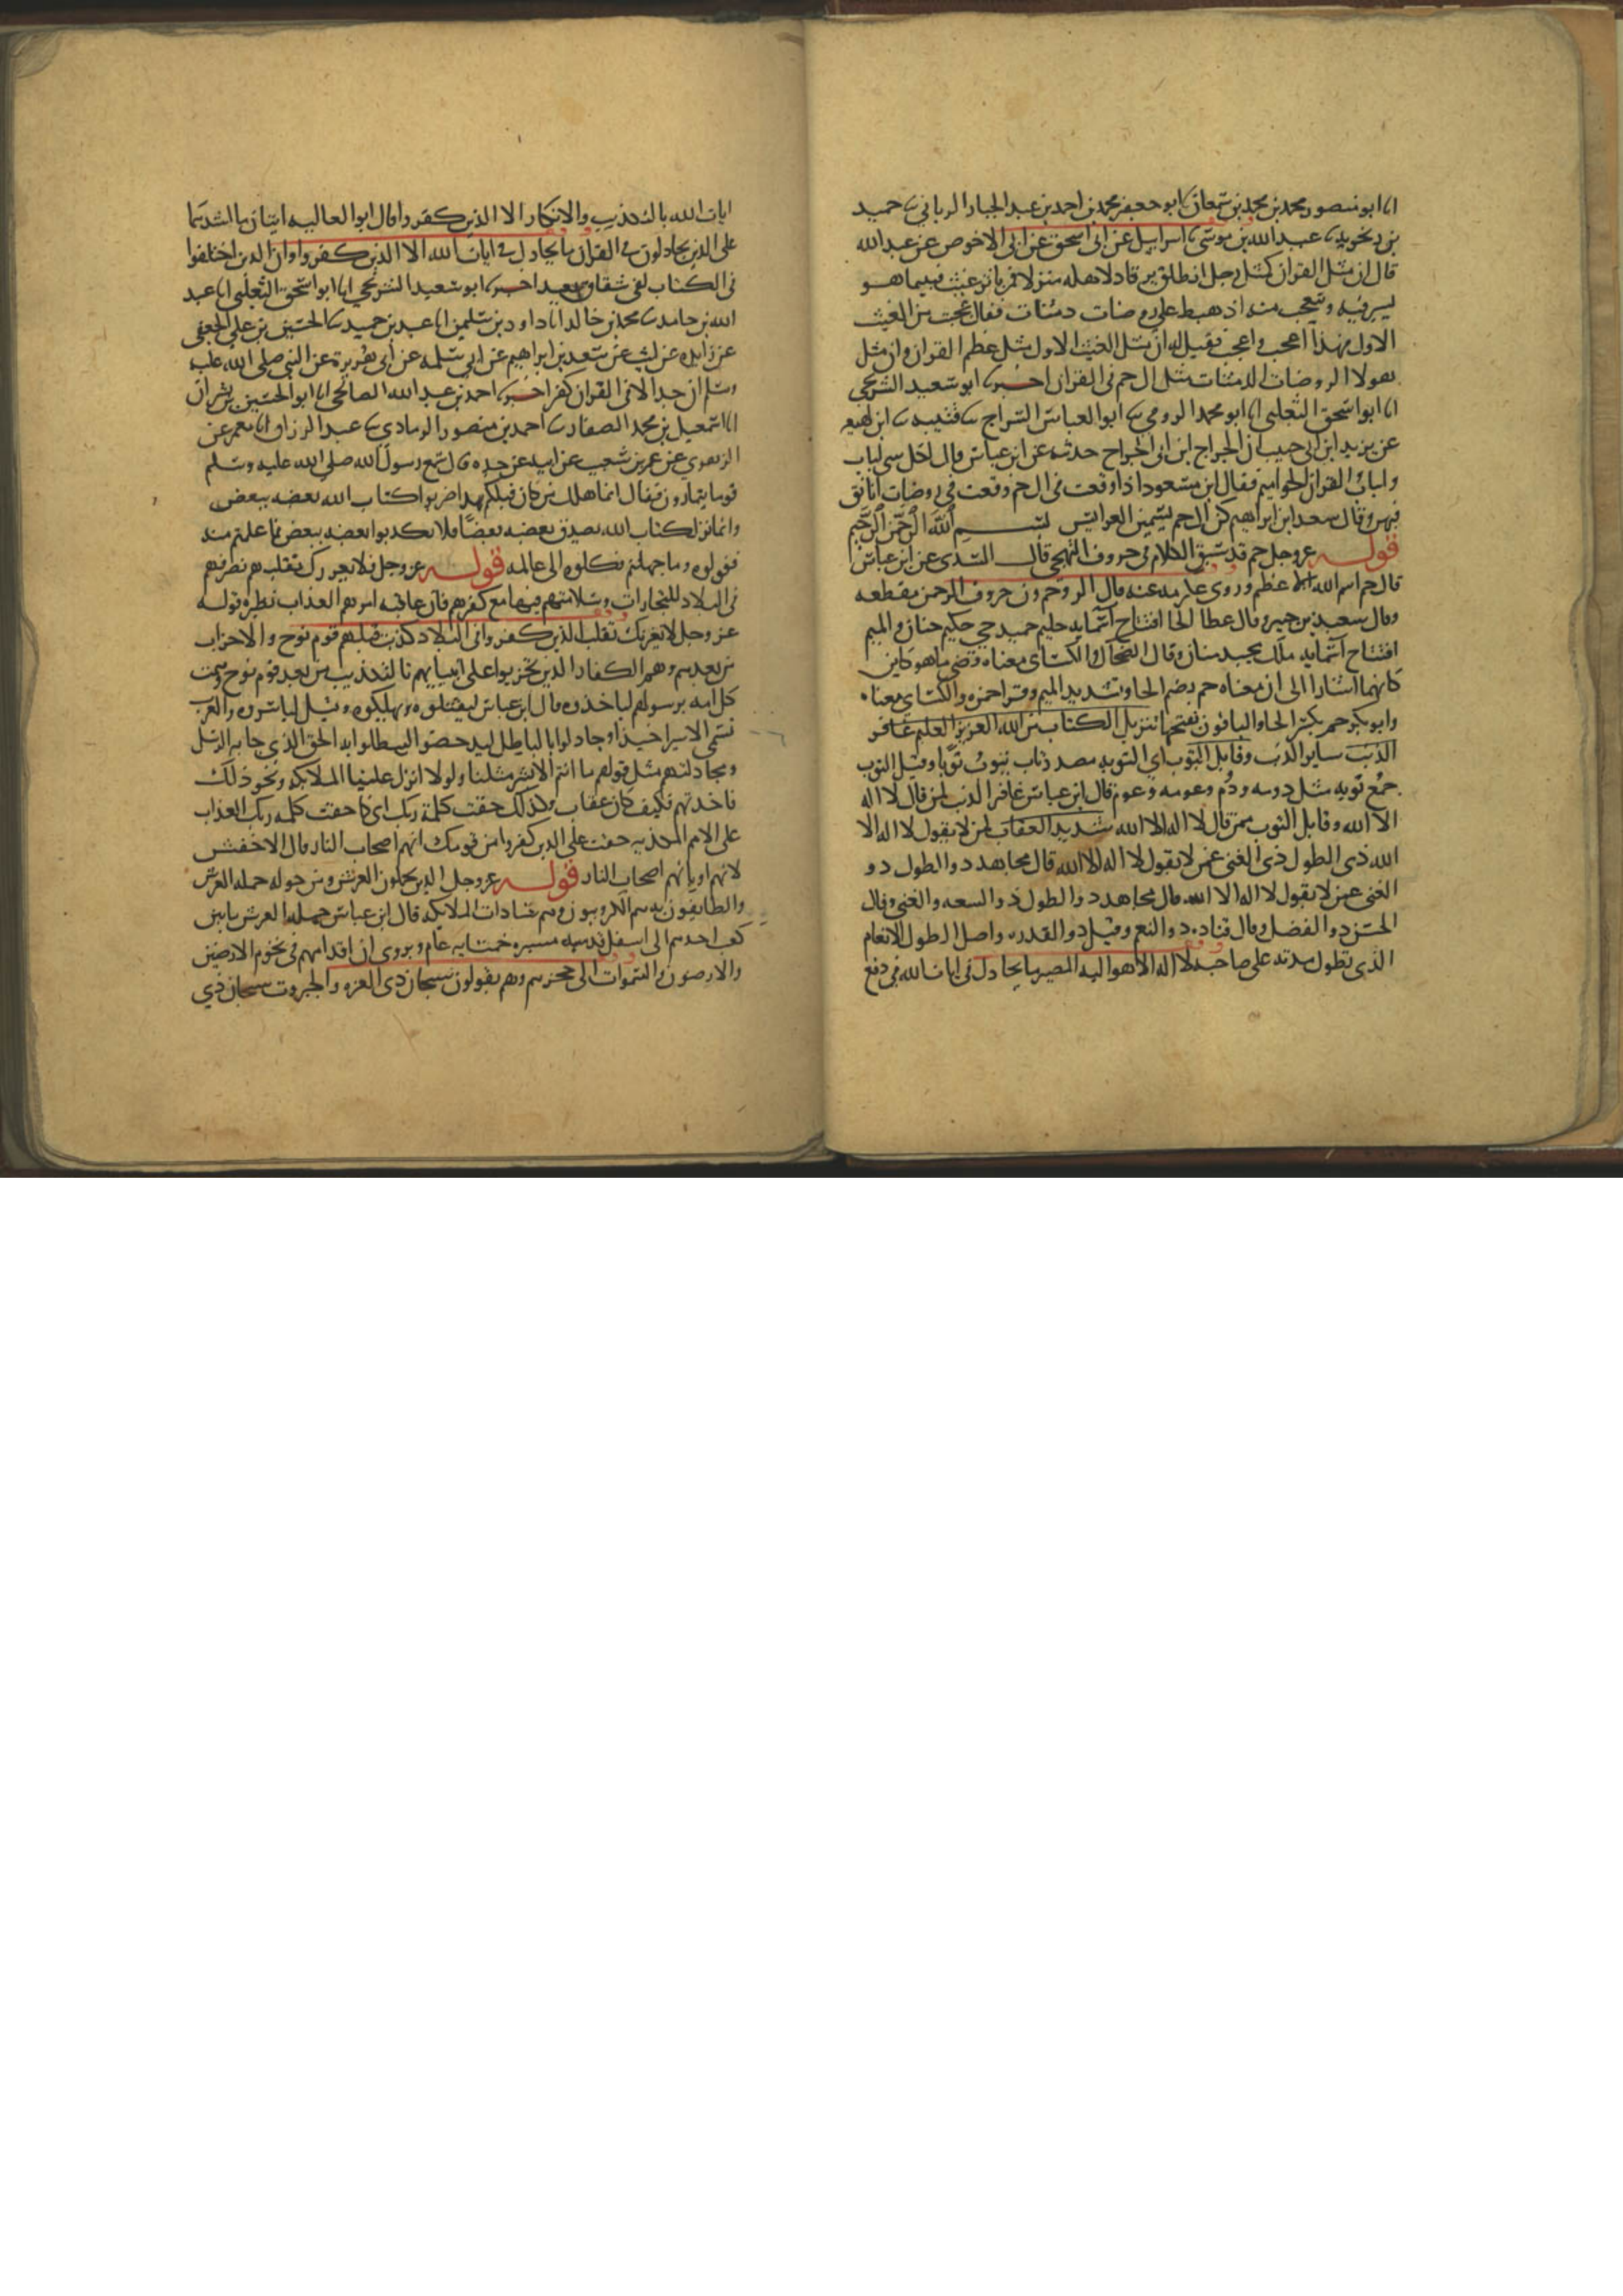 انا ابو منصور محمد بن محمد بن سمعان نا ابو جعفر محمد بن احمد بن عبد الجبار الرياني نا حميد
بن زنجويه نا عبد الله بن موسى نا اسرايل عن ابي اسحق عن ابي الاحوص عن عبد الله
قال ان مثل القران كمثل رجل انطلق يرتاد لاهله منزلا فمر باثر غيث فبينما هو
يسير فيه ويتعجب منه اذ هبط على روضات دمثات فقال عجبت من الغيث
الاول فهذا اعجب واعجب فقيل له ان مثل الغيث الاول مثل عظم القران وان مثل
هولا الروضات الدمثات مثل ال حم في القران اخبرنا ابو سعيد الشريحي
انا ابو اسحق الثعلبي انا ابو محمد الرومي نا ابو العباس السراج نا قتيبه نا ابن لهيعه
عن يزيد ابن ابي حبيب ان الجراح ابن ابي الجراح حدثه عن ابن عباس قال لكل شي لباب
ولباب القران الحواميم فقال ابن مسعود اذا وقعت في ال حم وقعت في روضات اتانق
فيهن وقال سعد ابن ابراهيم كن ال حم يسمين العرايس بسم الله الرحمن الرحيم
قوله عز وجل حم قد سبق الكلام في حروف التهجي قال السدي عن ابن عباس
قال حم اسم الله الاعظم وروى عكرمه عنه قال الر وحم ون حروف الرحمن مقطعه
وقال سعيد بن جبير وقال عطا الحا افتتاح اسمايه حليم حميد حي حكيم حنان والميم
افتتاح اسمايه ملك مجيد منان وقال الضحاك والكساي معناه قضى ما هو كاين
كانهما اشارا الى ان معناه حم بضم الحا وتشديد الميم وقرا حمزه والكساي معناه
وابو بكر حم بكسر الحا والباقون بفتحها تنزيل الكتاب من الله العزيز العليم غافر
الذنب ساير الذنب وقابل التوب اي التوبه مصدر تاب يتوب توبا وقيل التوب
جمع توبه مثل دومه ودوم وعومه وعوم قال ابن عباس غافر الذنب لمن قال لا اله
الا الله وقابل التوب ممن قال لا اله الا الله شديد العقاب لمن لا يقول لا اله الا
الله ذي الطول ذي الغنى عمن لا يقول لا اله الا الله قال مجاهد ذو الطول ذو
الغنى عمن لا يقول لا اله الا الله قال مجاهد ذو الطول ذو السعه والغنى وقال
الحسن ذو الفضل وقال قتاده ذو النعم وقيل ذو القدره واصل الطول الانعام
الذي تطول مدته على صاحبه لا اله الا هو اليه المصير ما يجادل في ايات الله في دفع
ايات الله بالتكذيب والانكار الا الذين كفروا قال ابو العاليه ايتان ما اشدهما
على الذين يجادلون في القران ما يجادل في ايات الله الا الذين كفروا وان الذين اختلفوا
في الكتاب لفي شقاق بعيد اخبرنا ابو سعيد الشريحي انا ابو اسحق الثعلبي انا عبد
الله بن حامد نا محمد بن خالد انا داود بن سليمن انا عبد بن حميد نا الحسين بن علي الجعفي
عن زايده عن ليث عن سعد بن ابراهيم عن ابي سلمه عن ابي هريرة عن النبي صلى الله عليه
وسلم ان جدالا في القران كفر اخبرنا احمد بن عبد الله الصالحي انا ابو الحسين بن بشران
انا اسمعيل بن محمد الصفار نا احمد بن منصور الرمادي نا عبد الرزاق انا معمر عن
الزهري عن عمرو بن شعيب عن ابيه عن جده قال سمع رسول الله صلى الله عليه وسلم
قوما يتمارون فقال انما هلك من كان قبلكم بهذا ضربوا كتاب الله بعضه ببعض
وانما نزل كتاب الله يصدق بعضه بعضا فلا تكذبوا بعضه ببعض فما علمتم منه
فقولوه وما جهلتم فكلوه الى عالمه قوله عز وجل فلا يغررك تقلبهم تصرفهم
في البلاد للتجارات وسلامتهم فيها مع كفرهم فان عاقبه امرهم العذاب نظيره قوله
عز وجل لا يغرنك تقلب الذين كفروا في البلاد كذبت قبلهم قوم نوح والاحزاب
من بعدهم وهم الكفار الذين تحزبوا على انبيايهم بالتكذيب من بعد قوم نوح وهمت
كل امه برسولهم لياخذوه قال ابن عباس ليقتلوه ويهلكوه وقيل لياسروه والعرب
تسمي الاسير اخيذا وجادلوا بالباطل ليدحضوا ليبطلوا به الحق الذي جا به الرسل
ومجادلتهم مثل قولهم ما انتم الا بشر مثلنا ولولا انزل علينا الملايكه ونحو ذلك
فاخذتهم فكيف كان عقاب وكذلك حقت كلمة ربك اي كما حقت كلمه ربك العذاب
على الامم المكذبه حقت على الذين كفروا من قومك انهم اصحاب النار قال الاخفش
لانهم او بانهم اصحاب النار قوله عز وجل الذين يحملون العرش ومن حوله حمله العرش
والطايفون به هم الكروبيون وهم سادات الملايكه قال ابن عباس حمله العرش ما بين
كعب احدهم الى اسفل قدميه مسيره خمسمايه عام ويروى ان اقدامهم في تخوم الارضين
والارضون والسموات الى حجزهم وهم يقولون سبحان ذي العزه والجبروت سبحان ذي